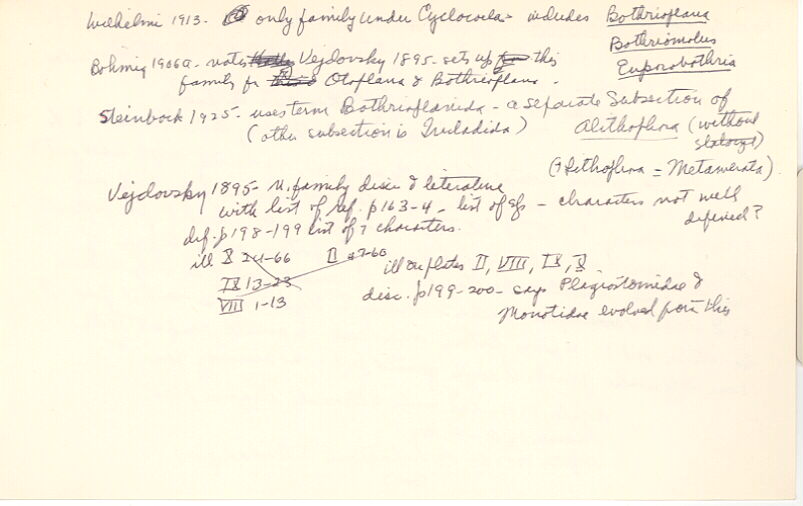 Wilhelmi 1913. only family under Cyclocoela - includes Bothrioplana
Bothriomolus
Euporobothria
Bohmig 1906a - notes Vejdovsky 1895 - sets up this
family for Otoplana & Bothrioplana.
Steinbock 1925 - uses term Bothrioplanida - a separate Subsection of
(other subsection is Tricladida) Alithophora (without
statocyst)
(= Metamerata).
Vejdovsky 1895 - n. family disc & literature
with list of ref. p163-4 - list of gfs - characters not well
defined?
def. p198-199 list of 7 characters.
ill X 24-66 II 47-60
IX 13-23
VIII 1-13
ill on plates II, VIII, IX, X.
disc. p199-200 - says Plagiostomidae &
Monotidae evolved from this